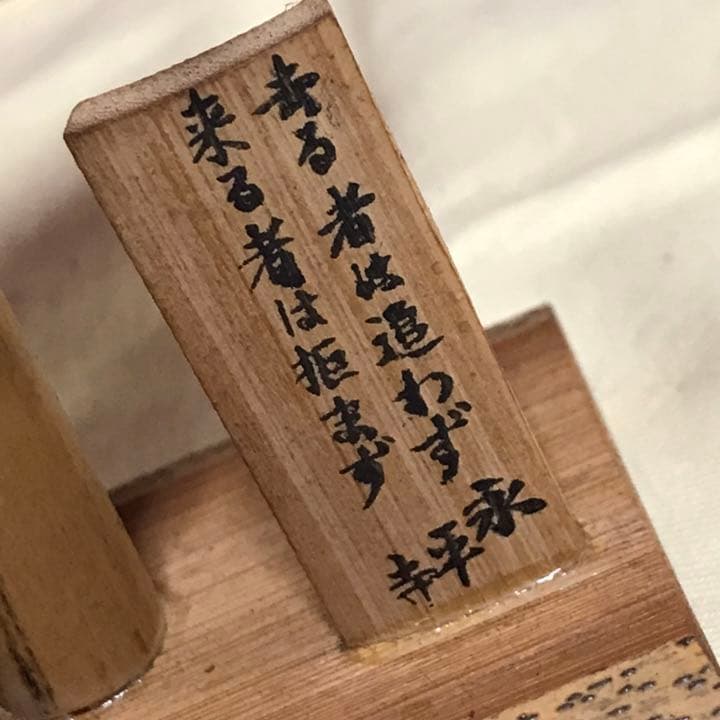 去る者は追わず
来る者は拒まず
永平寺